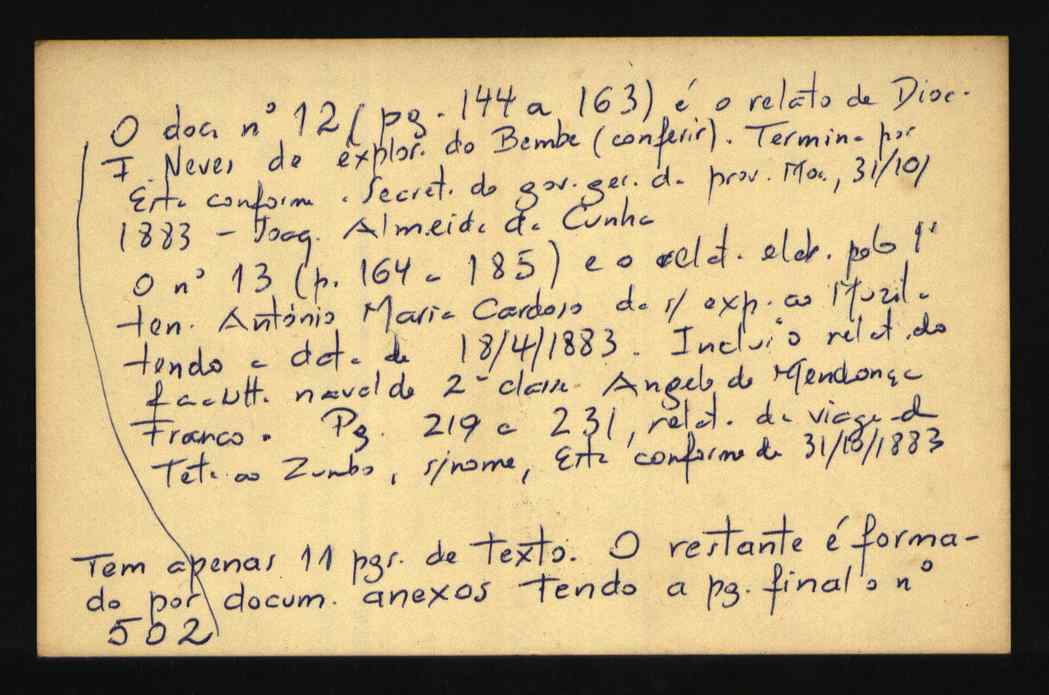 O doc. nº 12 (pg. 144 a 163) é o relato de Dioc.
F. Neves de explor. do Bembe (conferir). Termina por
Está conforme. Secret. do gov. ger. da prov. Moç., 31/10/
1883 – Joaq. Almeida da Cunha
O nº 13 (p. 164 a 185) e o relat. elab. pelo 1º
ten. António Maria Cardoso da s/ exp. ao Muzila
tendo a data de 18/4/1883. Inclui o relat. do
facult. naval de 2ª class. Angelo de Mendonça
Franco. Pg. 219 a 231, relat. da viagem de
Tete ao Zumbo, s/nome, Está conforme de 31/10/1883
Tem apenas 11 pgs. de texto. O restante é forma-
do por docum. anexos tendo a pg. final o nº
502